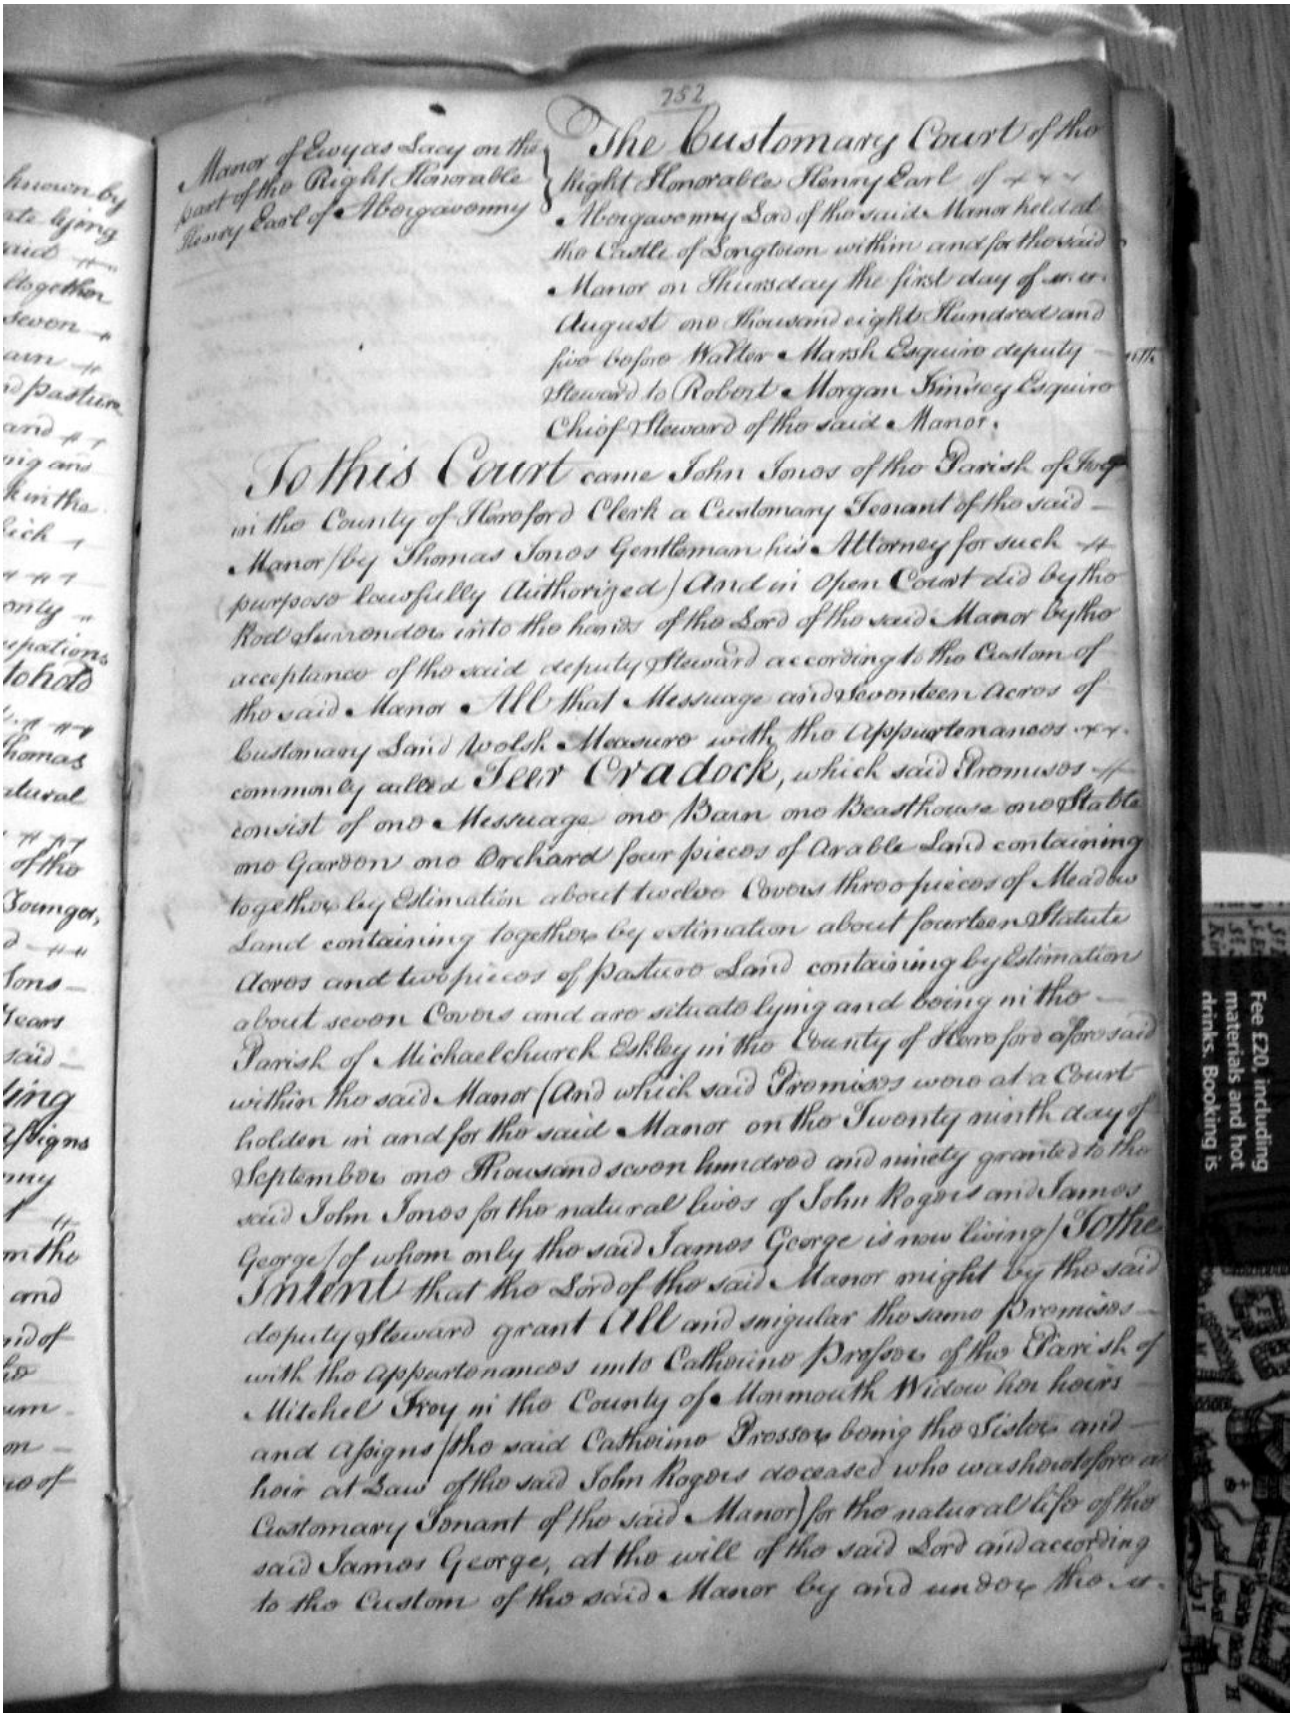 252
Manor of Ewyas Lacy on the
part of the Right Honorable
Henry Earl of Abergavenny
The Customary Court of the
Right Honorable Henry Earl of
Abergavenny Lord of the said Manor held at
the Castle of Longtown within and for the said
Manor on Thursday the first day of
August one Thousand eight Hundred and
five before Walter Marsh Esquire deputy
Steward to Robert Morgan Kinsey Esquire
Chief Steward of the said Manor.
To this Court came John Jones of the Parish of Foy
in the County of Hereford Clerk a Customary Tenant of the said
Manor (by Thomas Jones Gentleman his Attorney for such
purpose lawfully Authorized) And in Open Court did by the
Rod Surrender into the hands of the Lord of the said Manor by the
acceptance of the said deputy Steward according to the Custom of
the said Manor All that Messuage and Seventeen Acres of
Customary Land Welsh Measure with the Appurtenances
commonly called Teer Cradock, which said Premises
consist of one Messuage one Barn one Beasthouse one Stable
one Garden one Orchard four pieces of Arable Land containing
together by Estimation about twelve Covers three pieces of Meadow
Land containing together by estimation about fourteen Statute
Acres and two pieces of pasture Land containing by Estimation
about seven Covers and are situate lying and being in the
Parish of Michaelchurch Eskley in the County of Hereford aforesaid
within the said Manor (And which said Premises were at a Court
holden in and for the said Manor on the Twenty ninth day of
September one Thousand seven hundred and ninety granted to the
said John Jones for the natural lives of John Rogers and James
George (of whom only the said James George is now living) To the
Intent that the Lord of the said Manor might by the said
deputy Steward grant All and singular the same Premises
with the Appurtenances unto Catherine Prosser of the Parish of
Mitchel Troy in the County of Monmouth Widow her heirs
and Assigns (the said Catherine Prosser being the Sister and
heir at Law of the said John Rogers deceased who was heretofore a
Customary Tenant of the said Manor) for the natural life of the
said James George, at the will of the said Lord and according
to the Custom of the said Manor by and under the
known by
ate lying
said
together
seven
arn
nd pasture
and
ing and
k in the
hich
only
upations
to hold
Thomas
atural
of the
Younger,
Sons
Years
said
ling
Assigns
nny
on the
and
nd of
um
on
ue of
Fee £20, including
materials and hot
drinks. Booking is